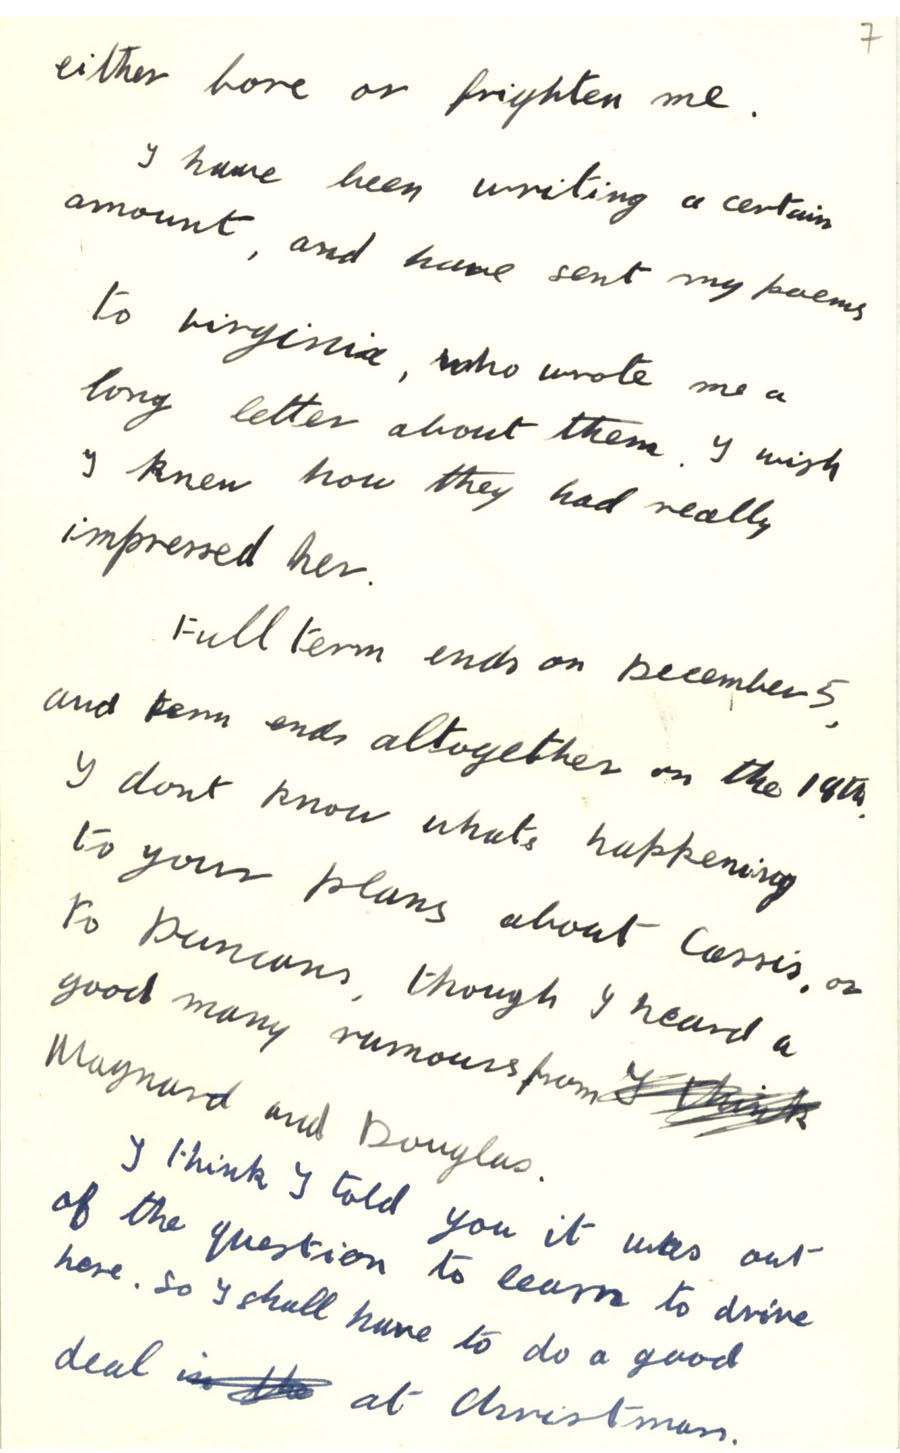 7
either bore or frighten me.
I have been writing a certain
amount, and have sent my poems
to Virginia, who wrote me a
long letter about them. I wish
I knew how they had really
impressed her.
Full term ends on December 5,
and term ends altogether on the 19th.
I dont know whats happening
to your plans about Cassis, or
to Duncans, though I heard a
good many rumours from I think
Maynard and Douglas.
I think I told you it was out
of the question to learn to drive
here. So I shall have to do a good
deal in the at Christmas.